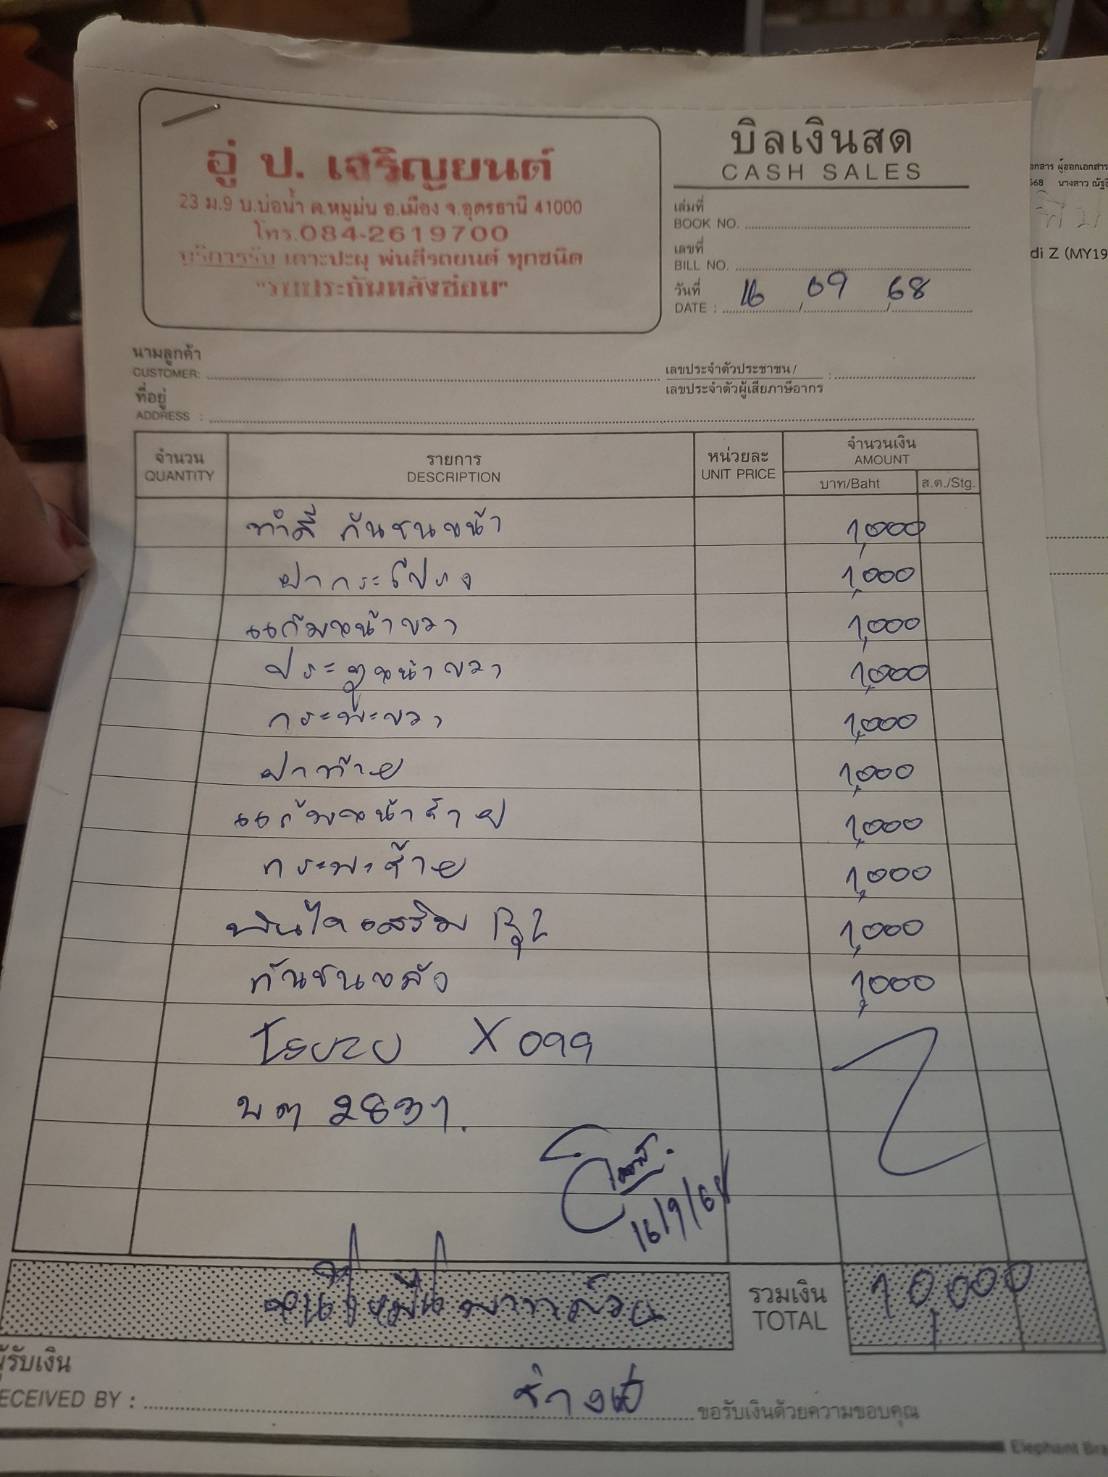 บิลเงินสด
CASH SALES
อู่ ป. เจริญยนต์
23 ม.9 บ.บ่อน้ำ ต.หมูม่น อ.เมือง จ.อุดรธานี 41000
โทร.084-2619700
บริการรับ เคาะปะผุ พ่นสีรถยนต์ ทุกชนิด
"รับประกันหลังซ่อม"
เล่มที่
BOOK NO.
เลขที่
BILL NO.
วันที่
DATE : 16 / 09 / 68
นามลูกค้า
CUSTOMER:
เลขประจำตัวประชาชน/
เลขประจำตัวผู้เสียภาษีอากร
ที่อยู่
ADDRESS :
จำนวน QUANTITY
รายการ DESCRIPTION
หน่วยละ UNIT PRICE
จำนวนเงิน AMOUNT
บาท/Baht ส.ต./Stg.
ทำสี กันชนหน้า 1,000
ฝากระโปรง 1,000
แก้มหน้าขวา 1,000
ประตูหน้าขวา 1,000
กระพะขวา 1,000
ฝาท้าย 1,000
แก้มหน้าซ้าย 1,000
กระพะซ้าย 1,000
1,000
กันชนหลัง 1,000
Isuzu X
บต 2837.
16/9/68
หนึ่งหมื่นบาทถ้วน
รวมเงิน TOTAL 10,000
ผู้รับเงิน
RECEIVED BY : ช่าง
ขอรับเงินด้วยความขอบคุณ
Elephant Bra
di Z (MY19